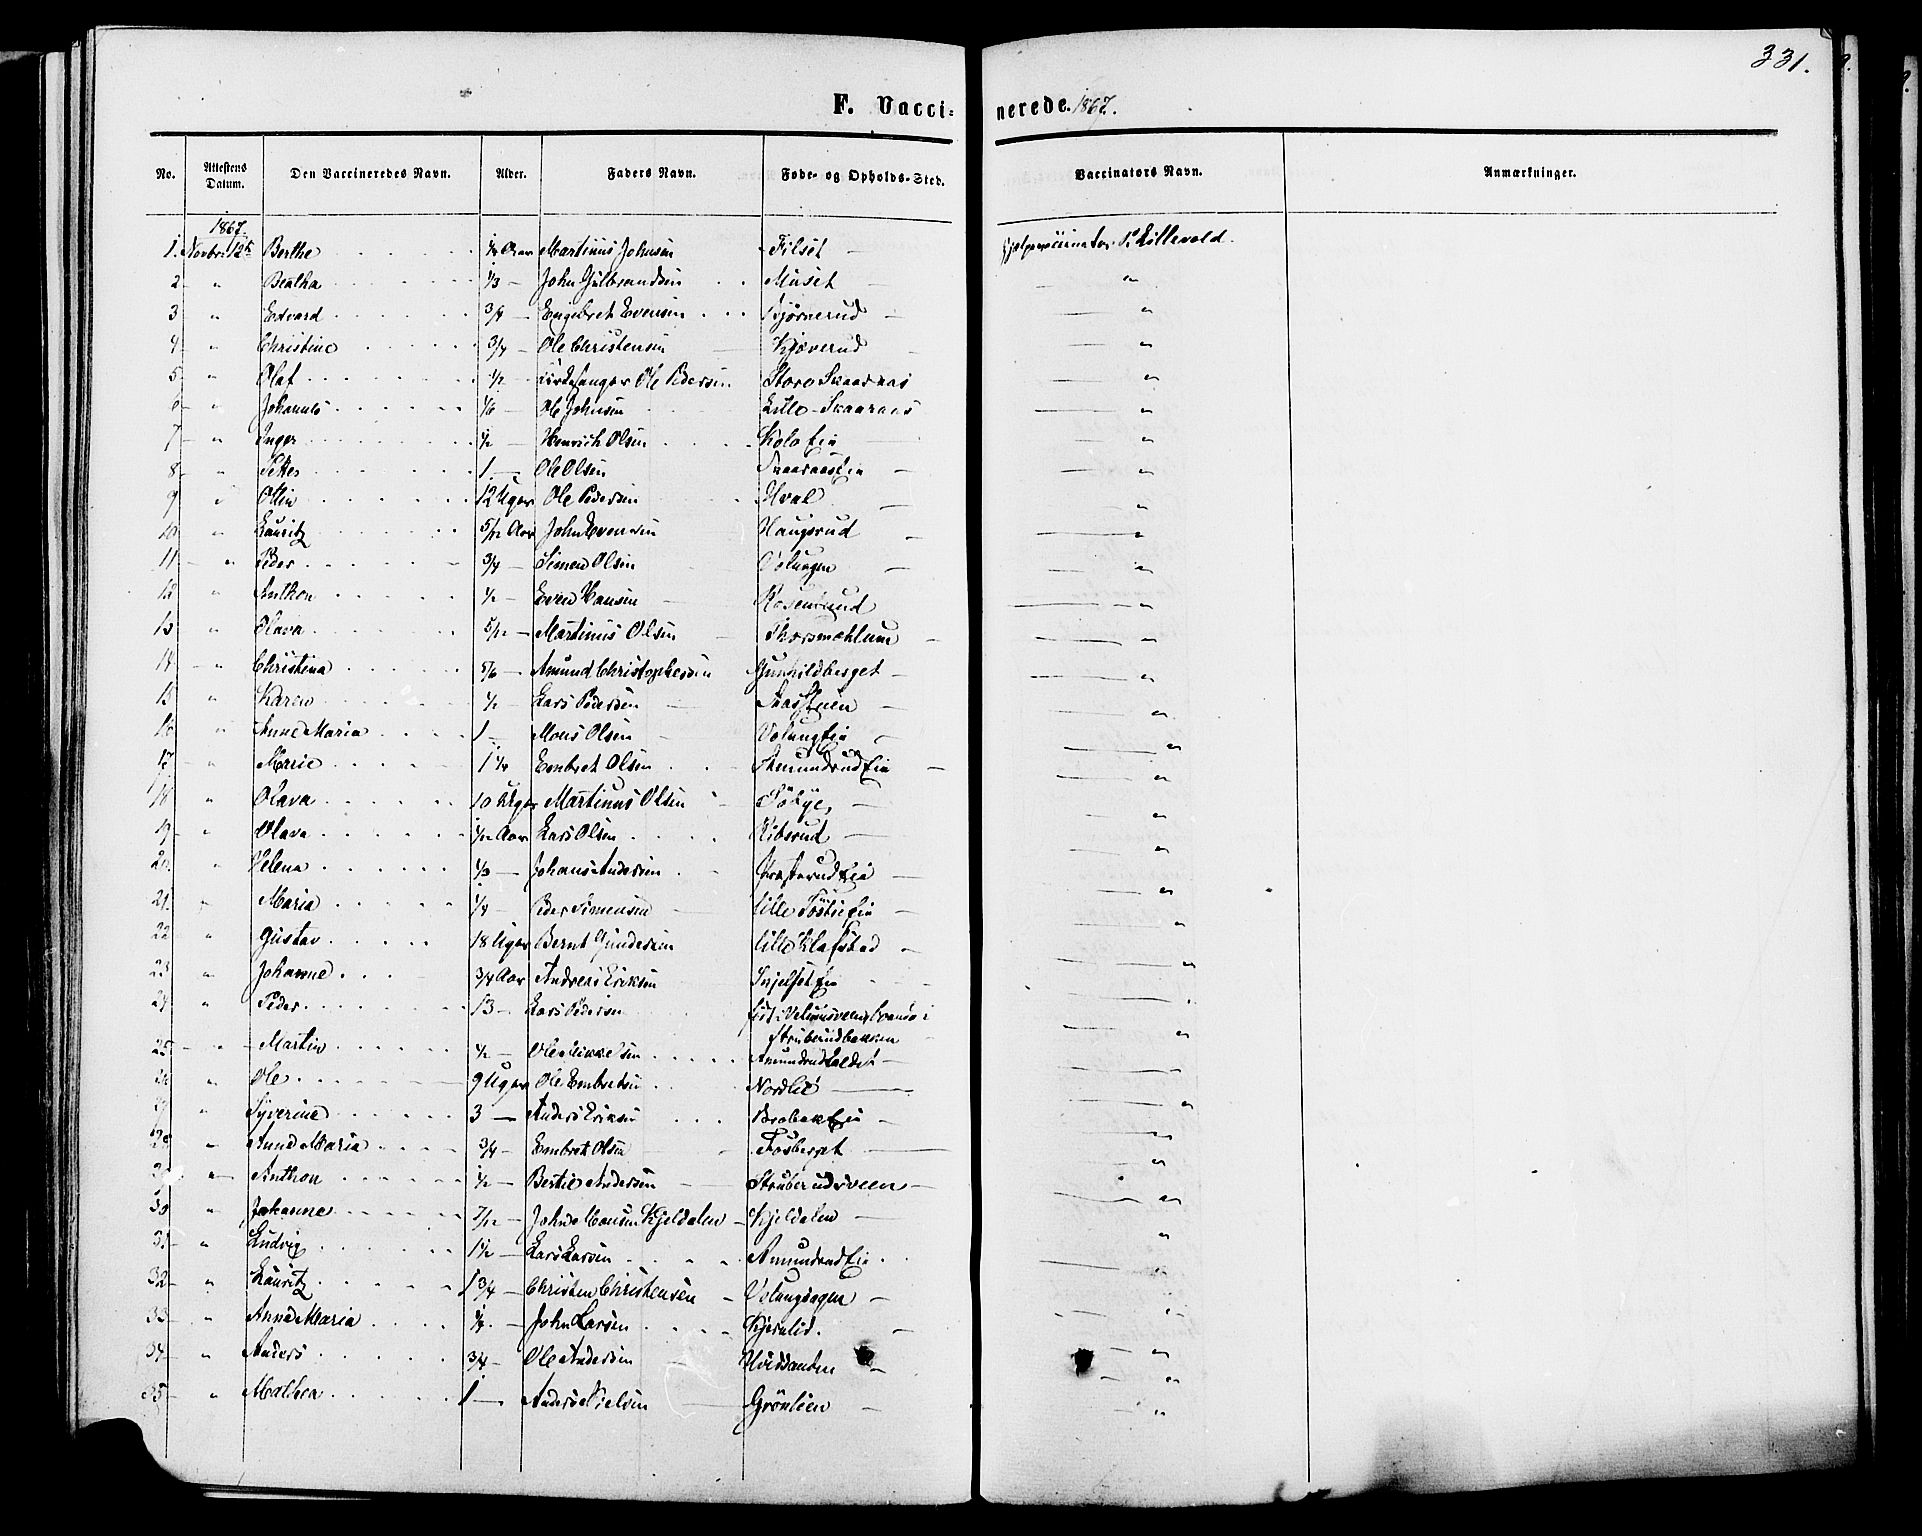 331.
F. Vaccinerede. 1867.
No. Attestens Datum. Den Vaccineredes Navn. Alder. Faders Navn. Føde- og Opholds-Sted. Vaccinators Navn. Anmærkninger.
1867.
1. Novbr. 12te Berthe 1/4 Aar Martinus Johnsen Filset Hjelpevaccinator P. Lillevold.
2 " Beatha 1/3 John Gulbrandsen Muset "
3 " Edvard 3/4 Engebret Evensen Bjørnerud "
4 " Christine 3/4 Ole Christensen Kjæverud "
5 " Olaf 1/2 Kirkesanger Ole Pedersen Store Skaaraas "
6 " Johannes 1/6 Ole Johnsen Lille-Skaaraas "
7 " Inger 1/2 Henrich Olsen Kolo Eie "
8 " 1 Ole Olsen Skaaraas Eie "
9 " Ottin 12 Uger Ole Pedersen Hval "
10 " Lauritz 5/12 Aar John Evensen Haugsrud "
11 " Peder 3/4 Simen Olsen Volungen "
12 " Anthon 1/2 Even Hansen "
13 " Olava 5/12 Martinus Olsen Thorsmæhlum "
14 " Christina 5/6 Amund Christophersen Gunhildberget "
15 " Karen 1/2 Lars Pedersen "
16 " Anne Maria 1 Mons Olsen Volung Eie "
17 " Marie 1 1/4 Embret Olsen Amundrud Eie "
18 " Olava 10 Uger Martinus Olsen "
19 " Olava 1/12 Aar Lars Olsen Kibsrud "
20. " Helena 1/3 Johans Andersen "
21. " Maria 1/4 Peder Simensen "
22 " Gustav 18 Uger Bernt Gundersen Lille Klafstad "
23 " Johanne 3/4 Aar Andreas Eriksen "
24 " Peder 13 Lars Pedersen
Struberudbakken "
25 " Martin 1/2 Ole Mikkelsen "
26 " Ole 9 Uger Ole Embretsen Nordlie "
27 " Syverine 3 Anders Eriksen Brobak Eie "
28 " Anne Maria 3/4 Embret Olsen Fosberget "
29 " Anthon 1/2 Bertil Andersen Struberudsveen "
30 " Johanne 7/12 John Monsen Kjeldalen Kjeldalen "
31 " Ludvig 1 1/2 Lars Larsen Amundrud Eie "
32 " Lauritz 1 3/4 Christen Christensen Volungsagen "
33 " Anne Maria 1/4 John Larsen Kjernlid. "
34 " Anders 3/4 Ole Andersen Hvidsanden "
35 " Mathea 1 Anders Nielsen Grønlien "